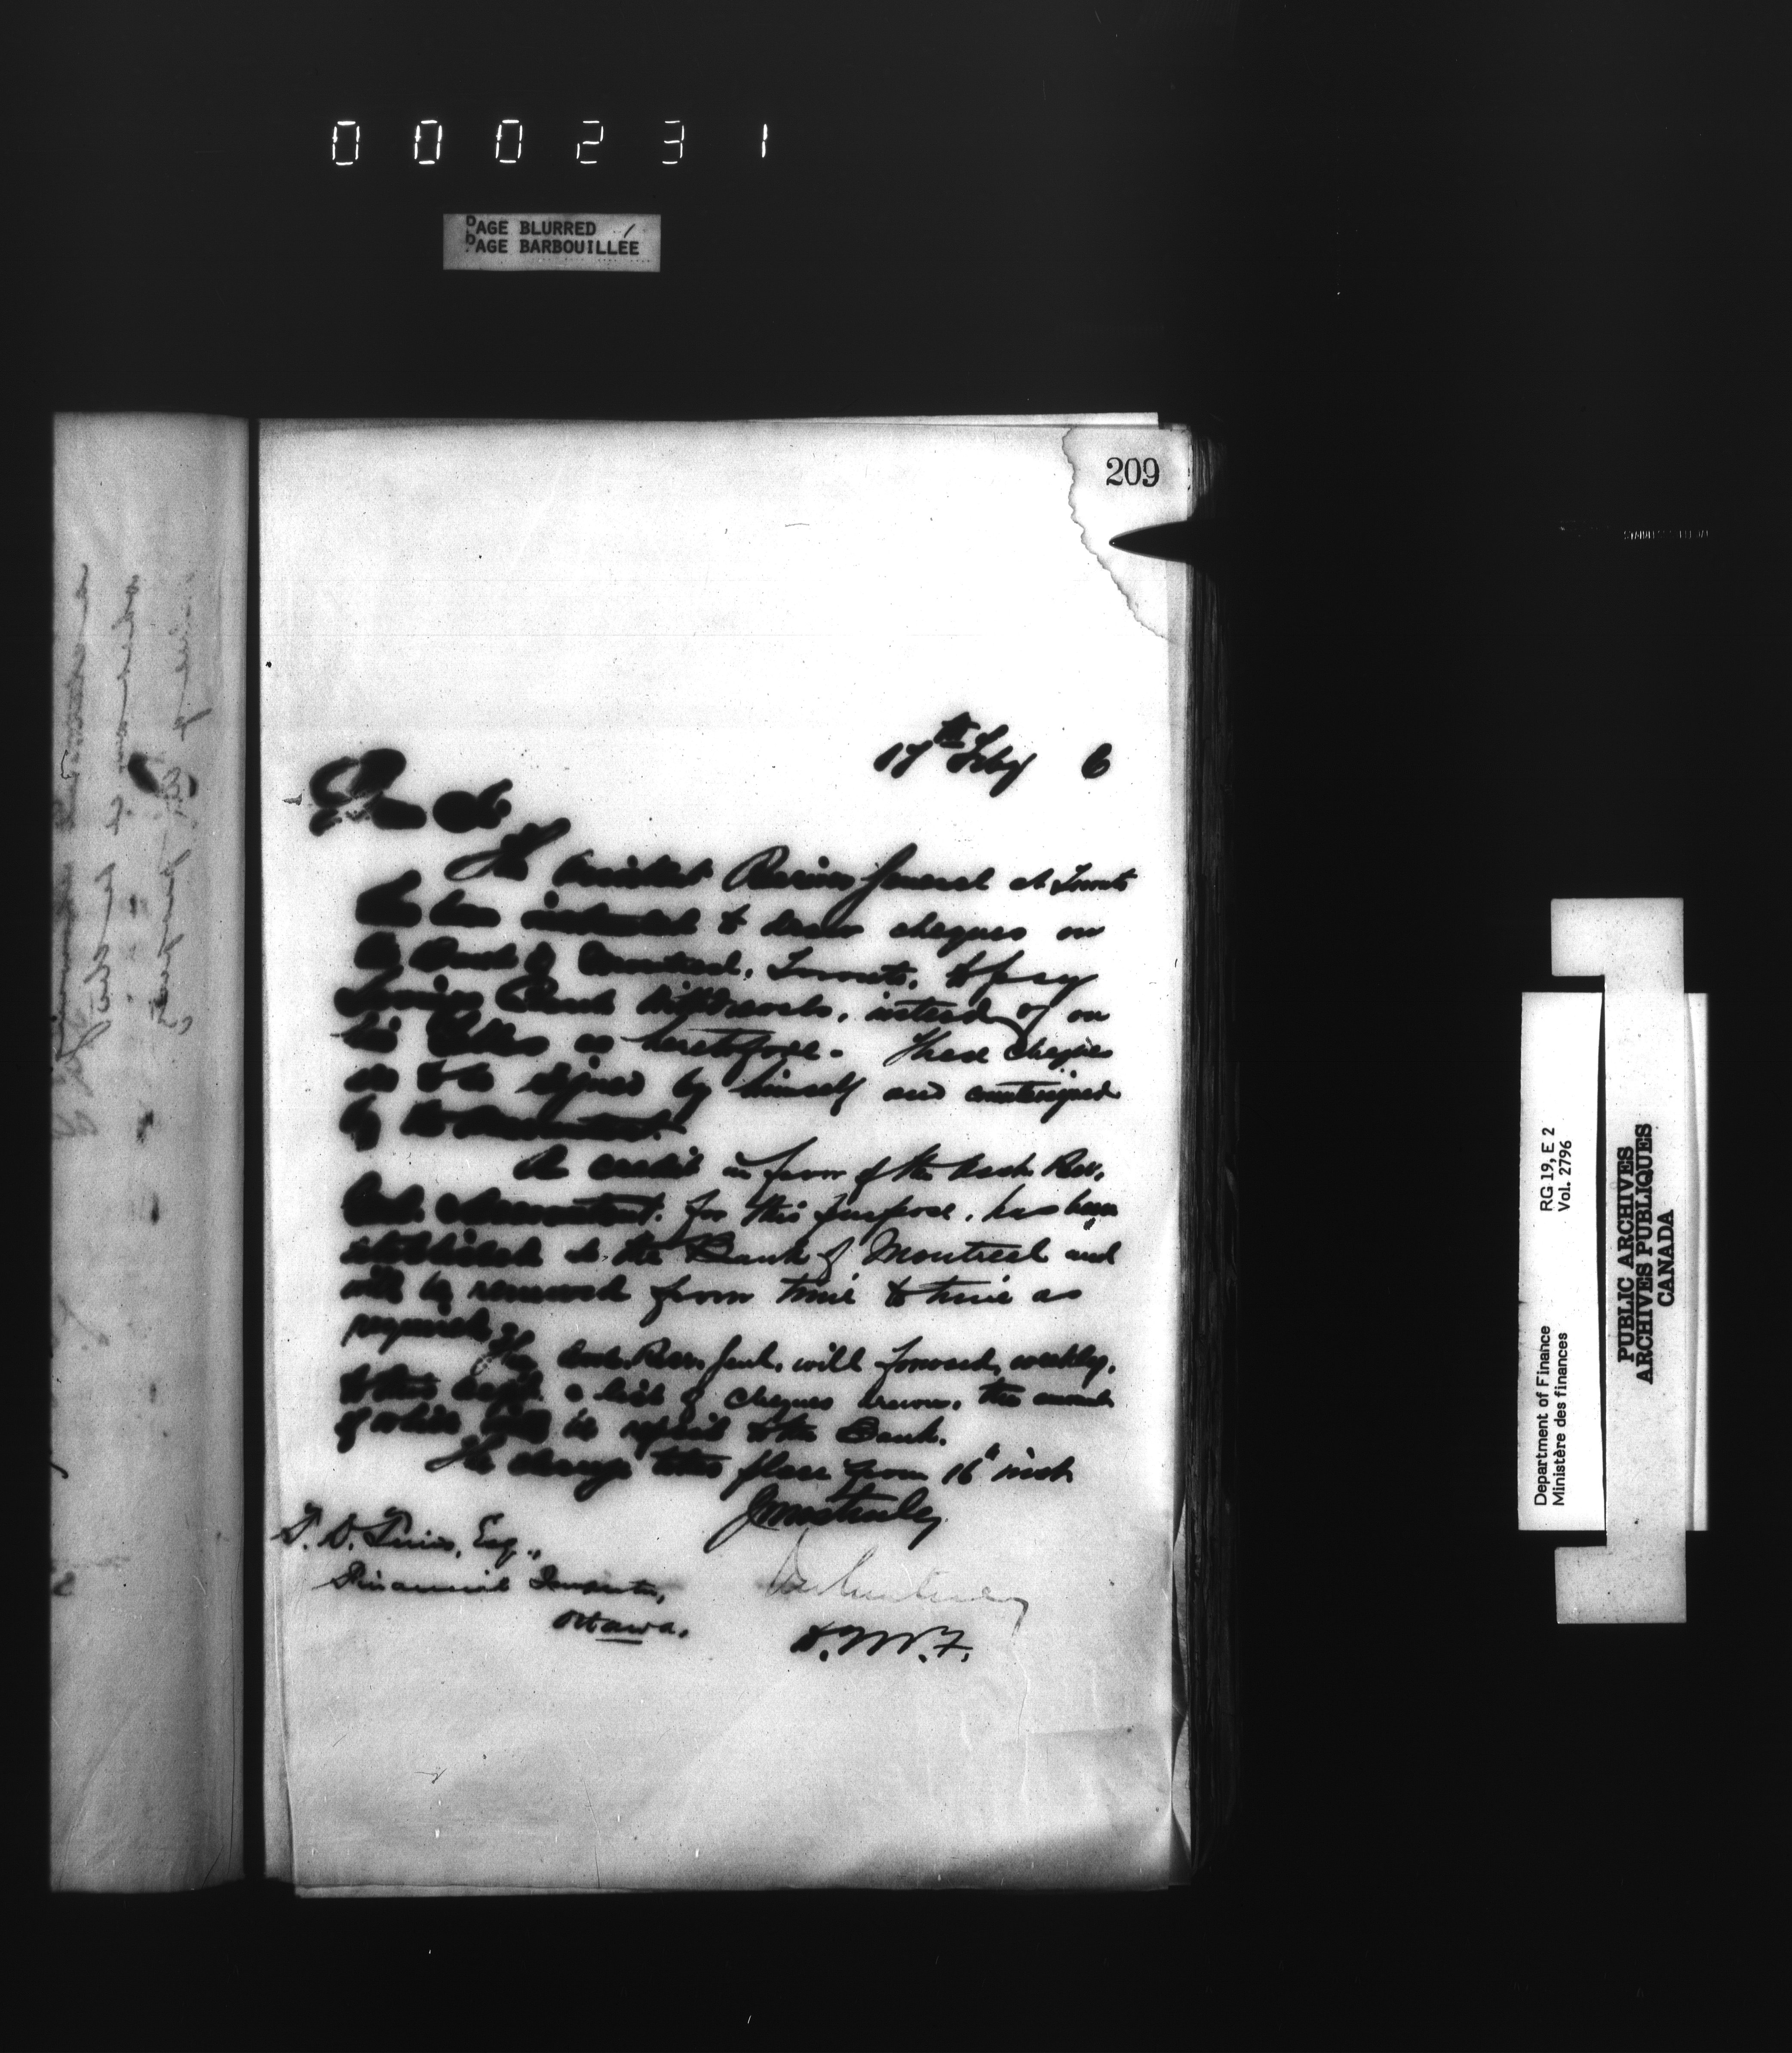 000231
PAGE BLURRED
PAGE BARBOUILLÉE
209
17th Feby 6
Dear Sir
The Assistant Receiver General at Toronto
has been instructed to draw cheques on
the Bank of Montreal, Toronto, to pay
Savings Bank withdrawals, instead of on
his Teller as heretofore. These cheques
are to be signed by himself and countersigned
by the Accountant.
A credit in favor of the Asst. Rec.
Accountant, for this purpose, has been
established in the Bank of Montreal and
will be renewed from time to time as
required.
The Asst. Rec. Genl. will forward, weekly,
to this Dept. a list of cheques drawn, the amount
of which will be repaid to the Bank.
The change takes place from 16th inst
J M Courtney
D.M.F.
Esq.,
Financial Inspector,
Ottawa.
Department of Finance
Ministère des finances
RG 19, E 2
Vol. 2796
PUBLIC ARCHIVES
ARCHIVES PUBLIQUES
CANADA